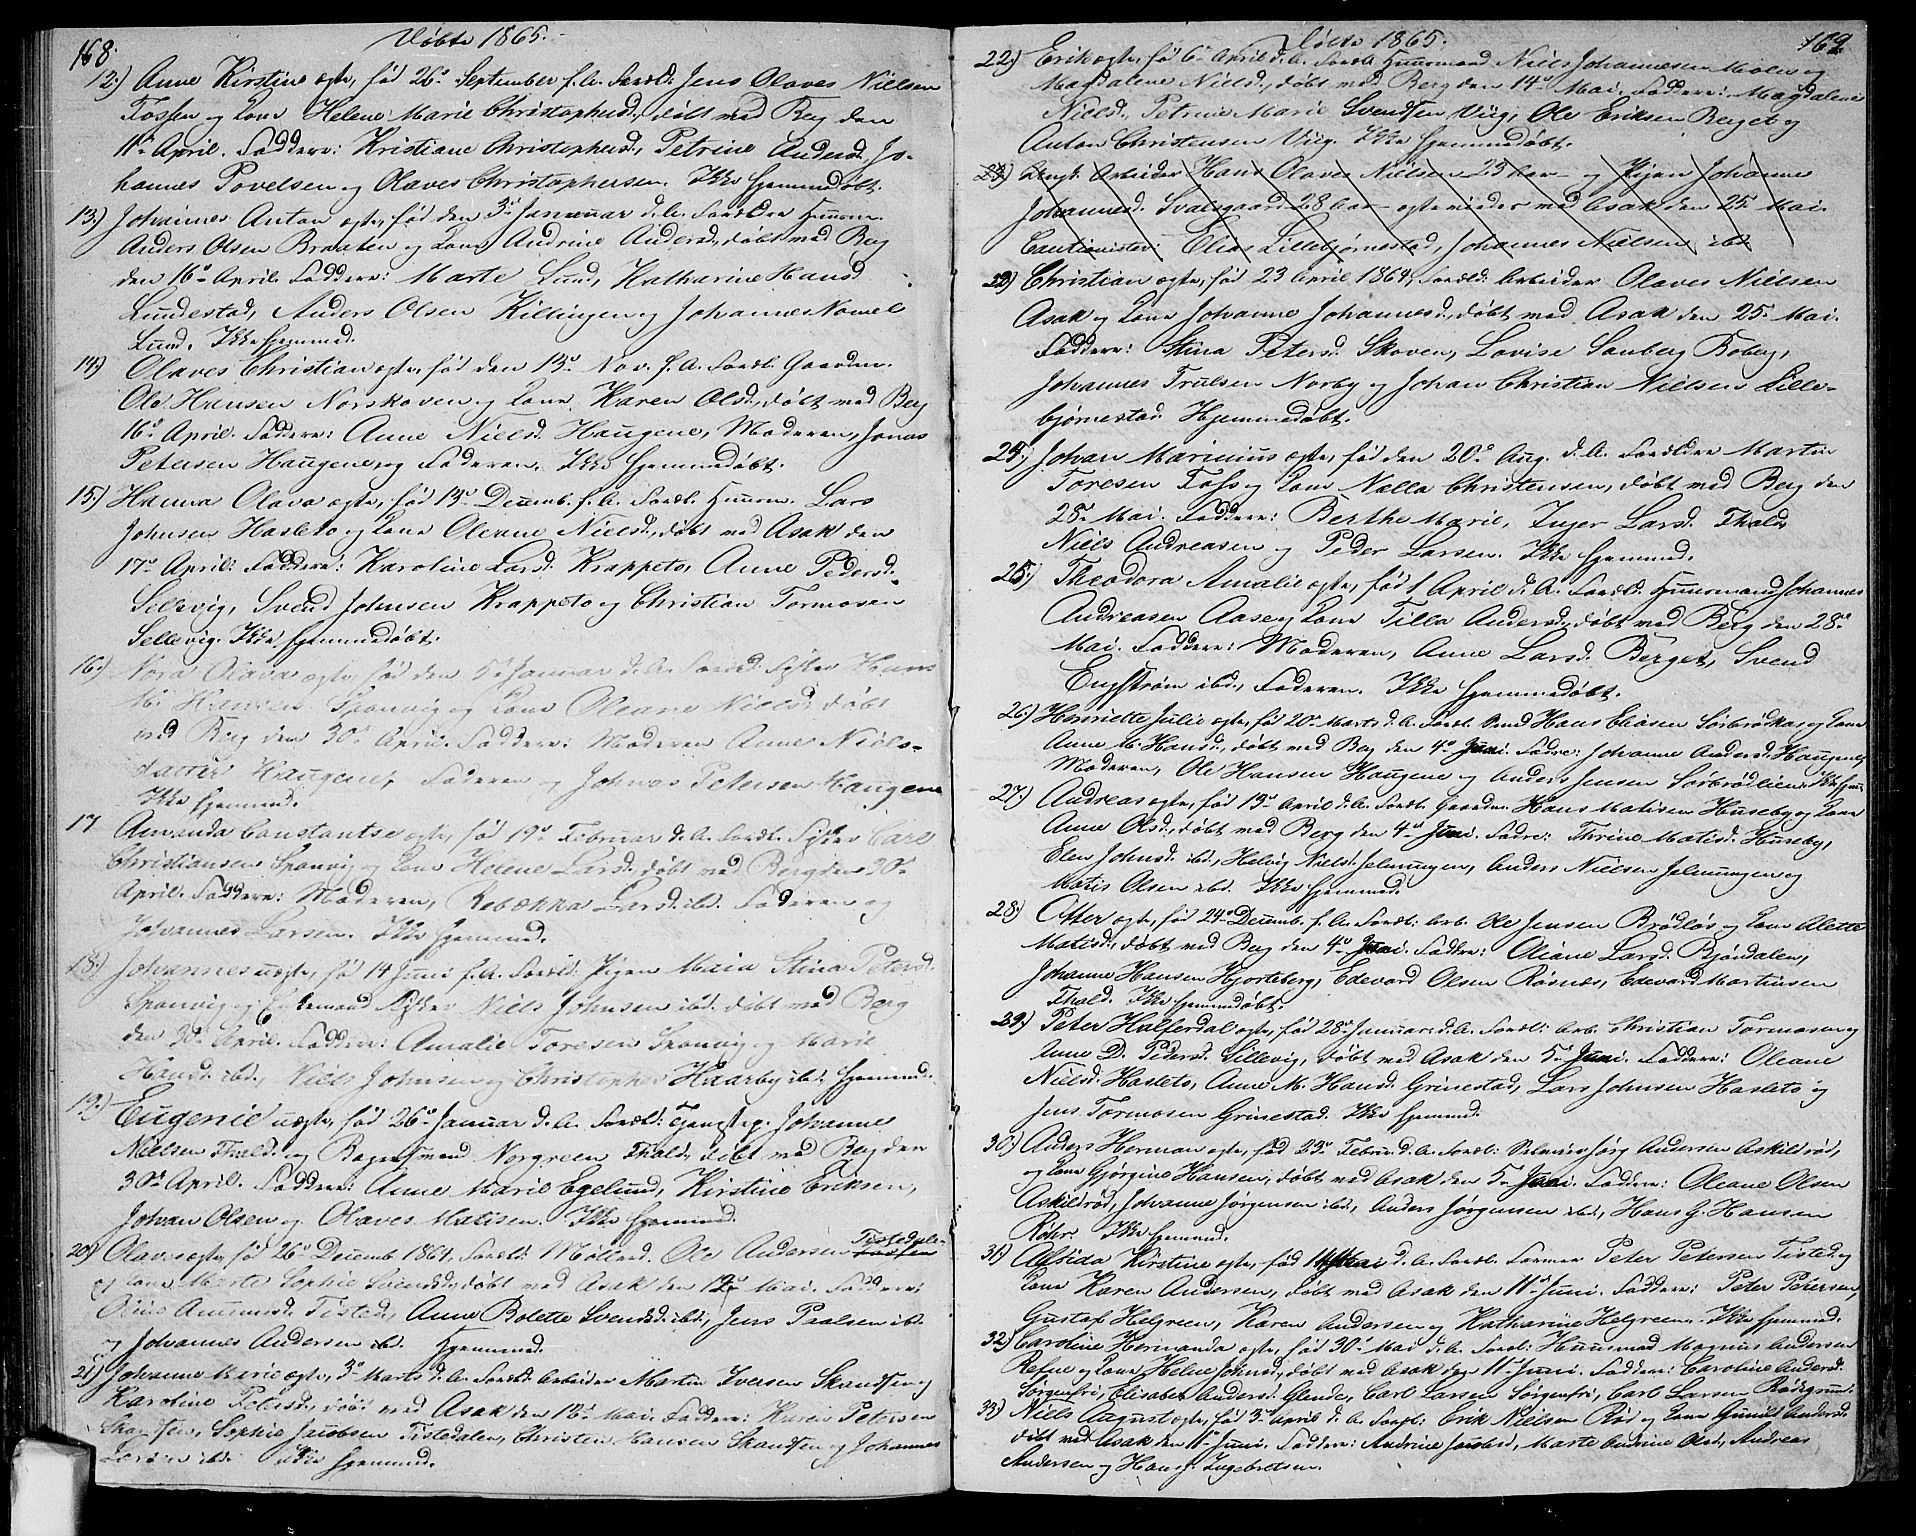 168.
Døbte 1865.
12.) Anne Kirstine ægte, fød 26de September f. A. Foræld: Jens Olaves Nielsen
Fossen og Kone Helene Marie Christophersd., døbt ved Berg den
11te April. Faddere: Kristiane Christophersd., Petrine Andersd. Jo-
hannes Povelsen og Olaves Christophersen. Ikke hjemmedøbt.
13.) Johannes Anton ægte, fød den 3de Januar d. A. Forældre Huusm.
Anders Olsen Braaten og Kone Andrine Andersd., døbt ved Berg
den 16de April. Faddere: Marte Lund, Katharine Hansd.
Lundestad, Anders Olsen Killingen og Johannes
Lund. Ikke hjemmed.
14.) Olaves Christian ægte, fød den 13de Nov. f. A. Foræld. Gaardm.
Ole Hansen Norskoven og Kone Karen Olsd., døbt ved Berg
16de April. Faddere: Anne Nielsd. Haugene, Moderen, Jonas
Petersen Haugene og Faderen. Ikke hjemmedøbt.
15.) Hanna Olava ægte, fød 13de Decemb. f. A. Foræld: Huusm. Lars
Johnsen Hasleto og Kone Oleane Nielsd., døbt ved Asak den
17de April. Faddere: Karoline Larsd. Krappeto, Anne Pedersd.
Sellevig, Svend Johnsen Krappeto og Christian Tormosen
Sellevig. Ikke hjemmedøbt.
16.) Nora Olava ægte, fød den 5te Januar d. A. Foræld. Hans
M. Hansen Sponvig og Kone Oleane Nielsd., døbt
ved Berg den 30te April. Faddere: Moderen Anne Niels-
datter Haugene, Faderen og Johnas Petersen Haugene
Ikke hjemmed.
17 Amanda Constantse ægte, fød 19de Februar d. A. Foræld. Carl
Christiansen Sponvig og Kone Helene Larsd., døbt ved Berg den 30te
April. Faddere: Moderen, Rebekka Larsd. ibd. Faderen og
Johannes Larsen. Ikke hjemmed.
18.) Johannes uægte, fød 14 Juni f. A. Foræld: Pigen Maia Stina Petersd.
Sponvig og Niels Johnsen ibd. døbt ved Berg
den 30te April. Faddere: Amalie Toresen Sponvig og Marie
Hansd. ibd., Niels Johnsen og Christopher Haarby ibd. hjemmed.
19.) Eugenie uægte, fød 26de Januar d. A. Foræld: Johanne
Nielsen Thald. og Norgreen Thald. døbt ved Berg den
30te April. Faddere: Anne Marie Egelund, Kirstine Eriksen,
Johan Olsen og Olaves Matisen. Ikke hjemmed.
20.) Olaves ægte, fød 26de Decemb 1864, Foræld: Ole Andersen Tistedalen
og Kone Marte Sophie Svendsd., døbt ved Asak den 12te Mai. Faddere:
Oline Amundsd. Tisted., Anne Bolette Svendsd. ibd., Jens Paalsen ibd.
og Johannes Andersen ibd. Hjemmed.
21.) Johanne Marie ægte, 3de Marts d. A. Foræld. Arbeider Martin Iversen Skandsen og
Karoline Petersd., døbt ved Asak den 12te Mai. Faddere: Karen Petersen
Skandsen, Sophie Jacobsen Tistedalen, Christen Hansen Skandsen og Johannes
Larsen ibd. Ikke hjemmed.
169.
Døbte 1865.
22.) Erik ægte, fød 6te April d. A. Foræld. Huusmand Niels Johannesen Molen og
Magdalene Nielsd., døbt ved Berg den 14de Mai. Faddere: Magdalene
Nielsd. Petrine Marie Svendsen Viig, Ole Eriksen Berget og
Anton Christensen Viig. Ikke hjemmedøbt.
23.) Ungk. Arbeider Hans Olaves Nielsen 23 Aar og Pigen Johanne
Johannesd. Svalsgaard 28 Aar ægteviedes ved Asak den 25. Mai.
Cautionister: Elias Lillebjørnestad, Johannes Nielsen ibd
23) Christian ægte, fød 23 April 1864, Foræld. Arbeider Olaves Nielsen
Asak og Kone Johanne Johannesd., døbt ved Asak den 25. Mai.
Faddere: Stina Petersd. Skoven, Lovise Sanberg Boberg,
Johannes Trulsen Norby og Johan Christian Nielsen Lille-
bjørnestad. Hjemmedøbt.
25.) Johan Marinius ægte, fød den 20de Aug. d. A. Forældre Martin
Toresen Foss og Kone Nella Christensen, døbt ved Berg den
28. Mai. Faddere: Berthe Marie, Inger Larsd. Thald.
Niels Andreasen og Peder Larsen. Ikke hjemmed.
25.) Theodora Amalie ægte, fød 1 April d. A. Foræld. Huusmand Johannes
Andreasen Aase og Kone Tilla Andersd., døbt ved Berg den 28de
Mai. Faddere: Moderen, Anne Larsd. Berget, Svend
Engstrøm ibd., Faderen. Ikke hjemmedøbt.
26.) Henriette Julie ægte, fød 20de Marts d. A. Foræld. Hans Eliasen Sørbrødløs og Kone
Anne M. Hansd., døbt ved Berg den 4de Juni. Faddre: Johanne Andersd. Haugene,
Moderen, Ole Hansen Haugene og Anders Jensen Sørbrødlien. Ikke hjem
27.) Andreas ægte, fød 13de April d. A. Foræld. Gaardm. Hans Matisen Huseby og Kone
Anne Olsd., døbt ved Berg den 4de Juni. Faddre: Thrine Matisd. Huseby,
Elen Johnsd. ibd., Helvig Nielsd. Jelmungen, Anders Nielsen Jelmungen og
Matis Olsen ibd. Ikke hjemmed.
28.) Otter ægte, fød 24de Decemb. f. A. Foræld: Arb. Ole Jensen Brødløs og Kone Alette
Matisd., døbt ved Berg den 4de Juni. Faddre: Oleane Larsd. Bjøndalen,
Johanne Hansen Hjorteberg, Edevard Olsen Røsnæs, Edevard Martinsen
Thald. Ikke hjemmedøbt.
29.) Peter Halferdal ægte, fød 28de Januar d. A. Foræld: Arb. Christian Tormosen og
Anne D. Pedersd. Sillevig, døbt ved Asak den 5te Juni. Faddere: Oleane
Nielsd. Hasleto, Anne M. Hansd. Grinestad, Lars Johnsen Hasleto og
Jens Tormosen Grinestad. Ikke hjemmed.
30.) Anders Herman ægte, fød 23de Febru. d. A. Foræld: Jørg Andersen Askildrød,
og Kone Gjørgine Hansen, døbt ved Asak den 5te Juni. Faddere: Oleane Olsen
Askildrød, Johanne Jørgensen ibd., Anders Jørgensen ibd., Hans G. Hansen
Røhr. Ikke hjemmed.
31.) Alfida Kirstine ægte, fød 1 Mai d. A. Foræld: Farver Peter Petersen Tisted. og
Kone Karen Andersen, døbt ved Asak den 11te Juni. Faddere: Peter Petersen,
Gustaf Helgreen, Karen Andersen og Katharine Helgreen. Ikke hjemmed.
32.) Caroline Hermanda ægte, fød 30te Mai d. A. Foræld: Huusmand Magnus Andersen
Refne og Kone Helene Johnsd., døbt ved Asak den 11te Juni. Faddere: Caroline Andersd.
Sørgenfri, Elisabet Andersd. Glende, Carl Larsen Sørgenfri, Carl Larsen Rødsgrund.
33.) Niels August ægte, fød 3de April d. A. Foræld: Erik Nielsen Rød og Kone Gunild Andersd.
døbt ved Asak den 11te Juni. Faddere: Andrine Jacobsd., Marte Andrine Olsd., Andreas
Andersen og Hans J. Ingebretsen.